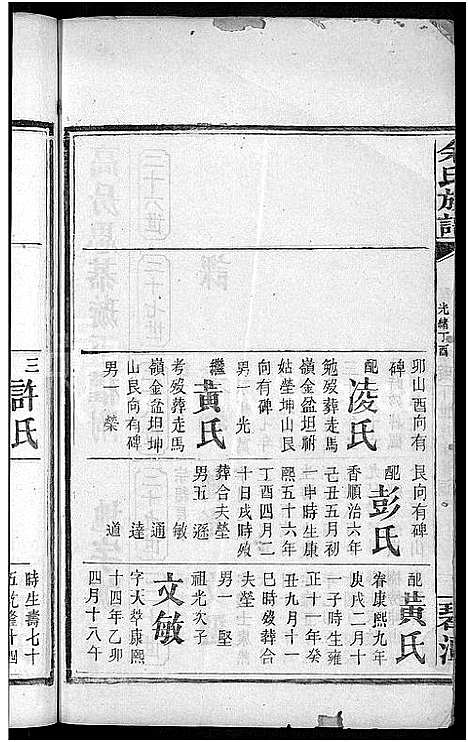 余氏族譜
光緒丁酉
碧潭
卯山酉向有
碑
配凌氏
勉歿葬走馬
嶺金盆坦祔
姑塋坤山艮
向有碑
男一 光
繼黃氏
考歿葬走馬
嶺金盆坦坤
山艮向有碑
男一 榮
艮向有碑
配彭氏
香順治六年
己丑五月初
一申時生康
熙五十六年
丁酉四月二
十日戌時歿
葬合夫塋
男五 遜
敏
通
達
道
配黃氏
春康熙九年
庚戌二月十
一子時生雍
正十一年癸
丑九月十一
巳時歿葬合
夫塋
男一 堅
祖光次子
文敏
字天萃康熙
十四年乙卯
四月十八午
三 許氏
時生壽七十